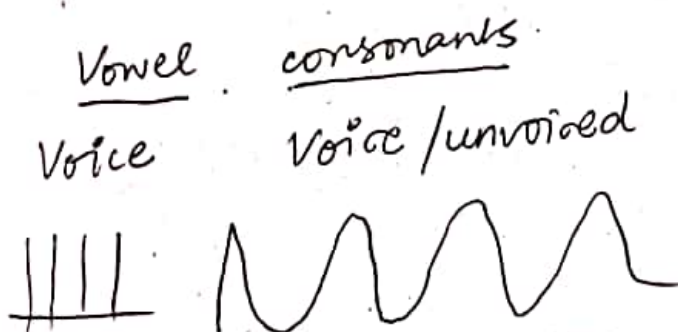 Vowel. consonants.
Voice Voice/unvoiced